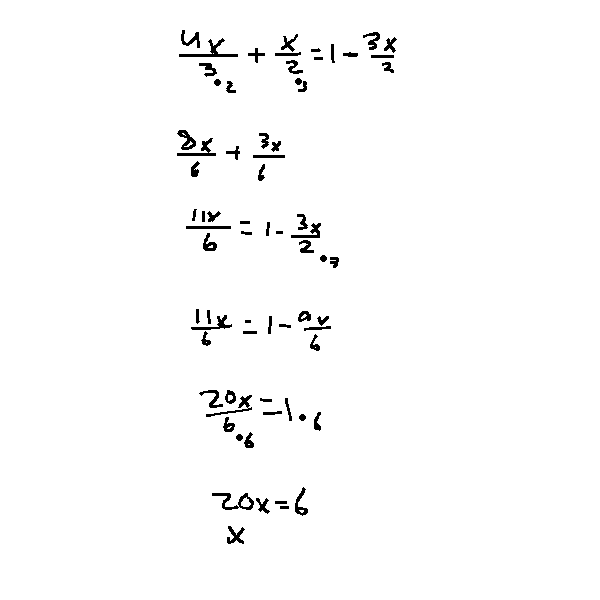 4x/3·2 + x/2·3 = 1 - 3x/2
8x/6 + 3x/6
11x/6 = 1 - 3x/2·3
11x/6 = 1 - 9x/6
20x/6·6 = 1·6
20x = 6
x